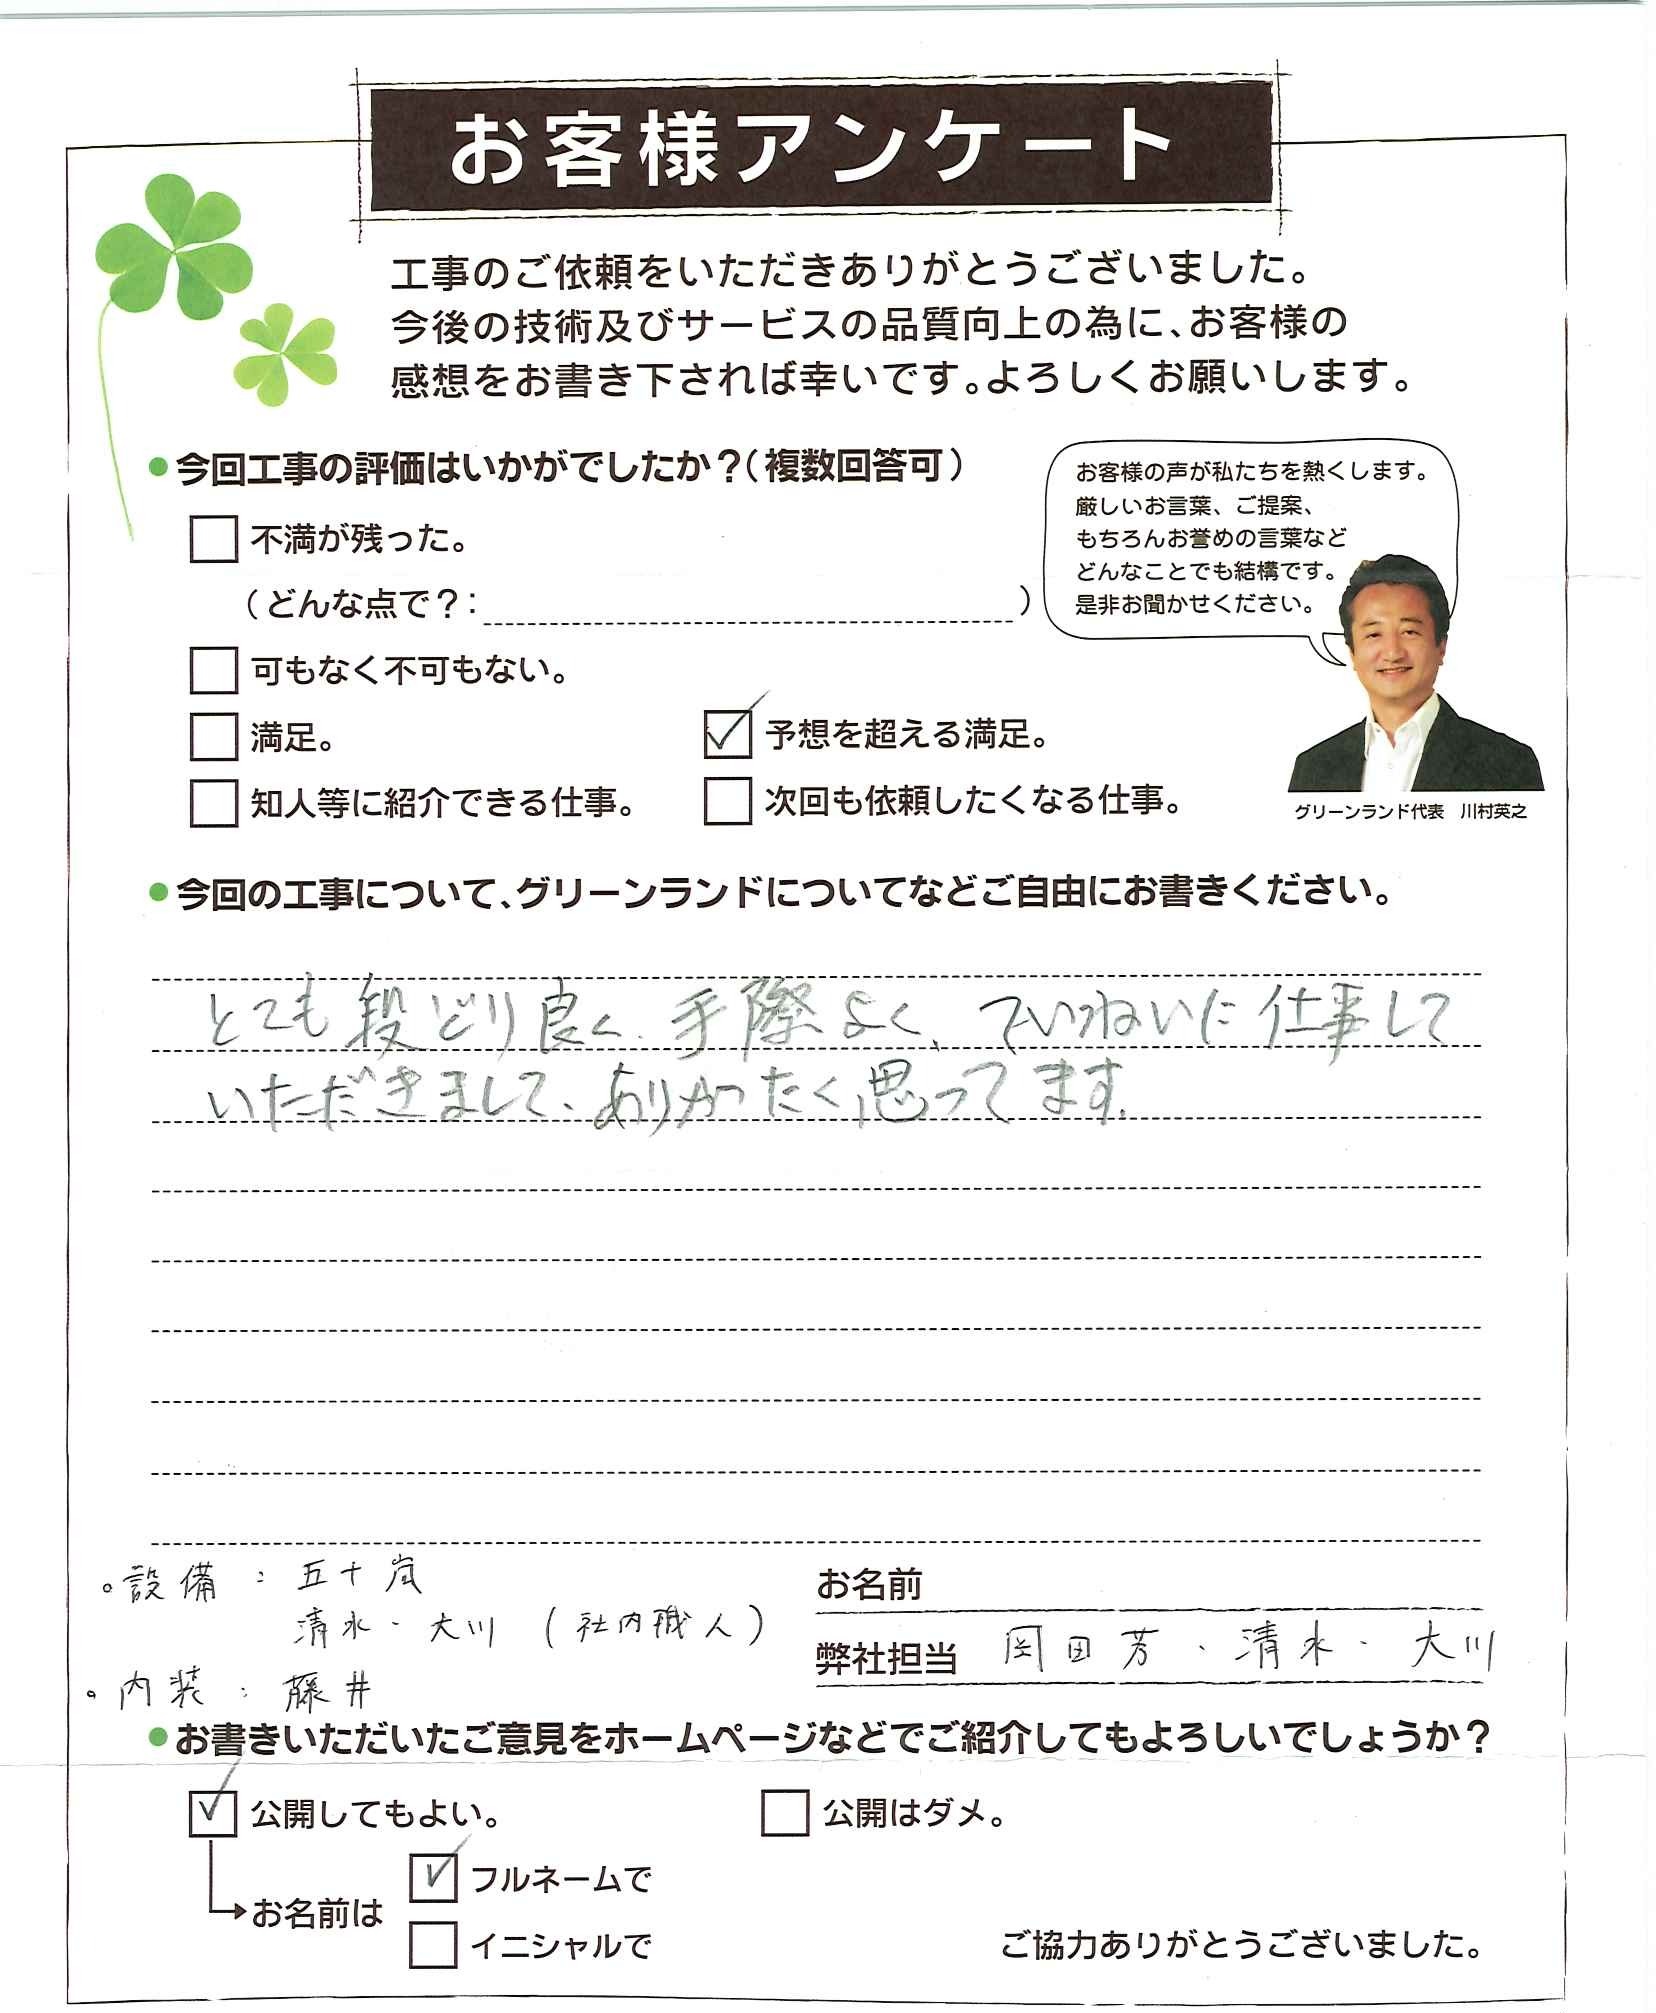 お客様アンケート
工事のご依頼をいただきありがとうございました。
今後の技術及びサービスの品質向上の為に、お客様の
感想をお書き下されば幸いです。よろしくお願いします。
●今回工事の評価はいかがでしたか?(複数回答可)
お客様の声が私たちを熱くします。
厳しいお言葉、ご提案、
もちろんお誉めの言葉など
どんなことでも結構です。
是非お聞かせください。
グリーンランド代表 川村英之
□不満が残った。
(どんな点で?: )
□可もなく不可もない。
□満足。 ☑予想を超える満足。
□知人等に紹介できる仕事。 □次回も依頼したくなる仕事。
●今回の工事について、グリーンランドについてなどご自由にお書きください。
とても段どり良く、手際よく、ていねいに仕事して
いただきまして、ありがたく思ってます。
。設備:五十嵐
清水・大川(社内職人)
。内装:藤井
お名前
弊社担当 岡田芳・清水・大川
●お書きいただいたご意見をホームページなどでご紹介してもよろしいでしょうか?
☑公開してもよい。 □公開はダメ。
お名前は ☑フルネームで
□イニシャルで
ご協力ありがとうございました。